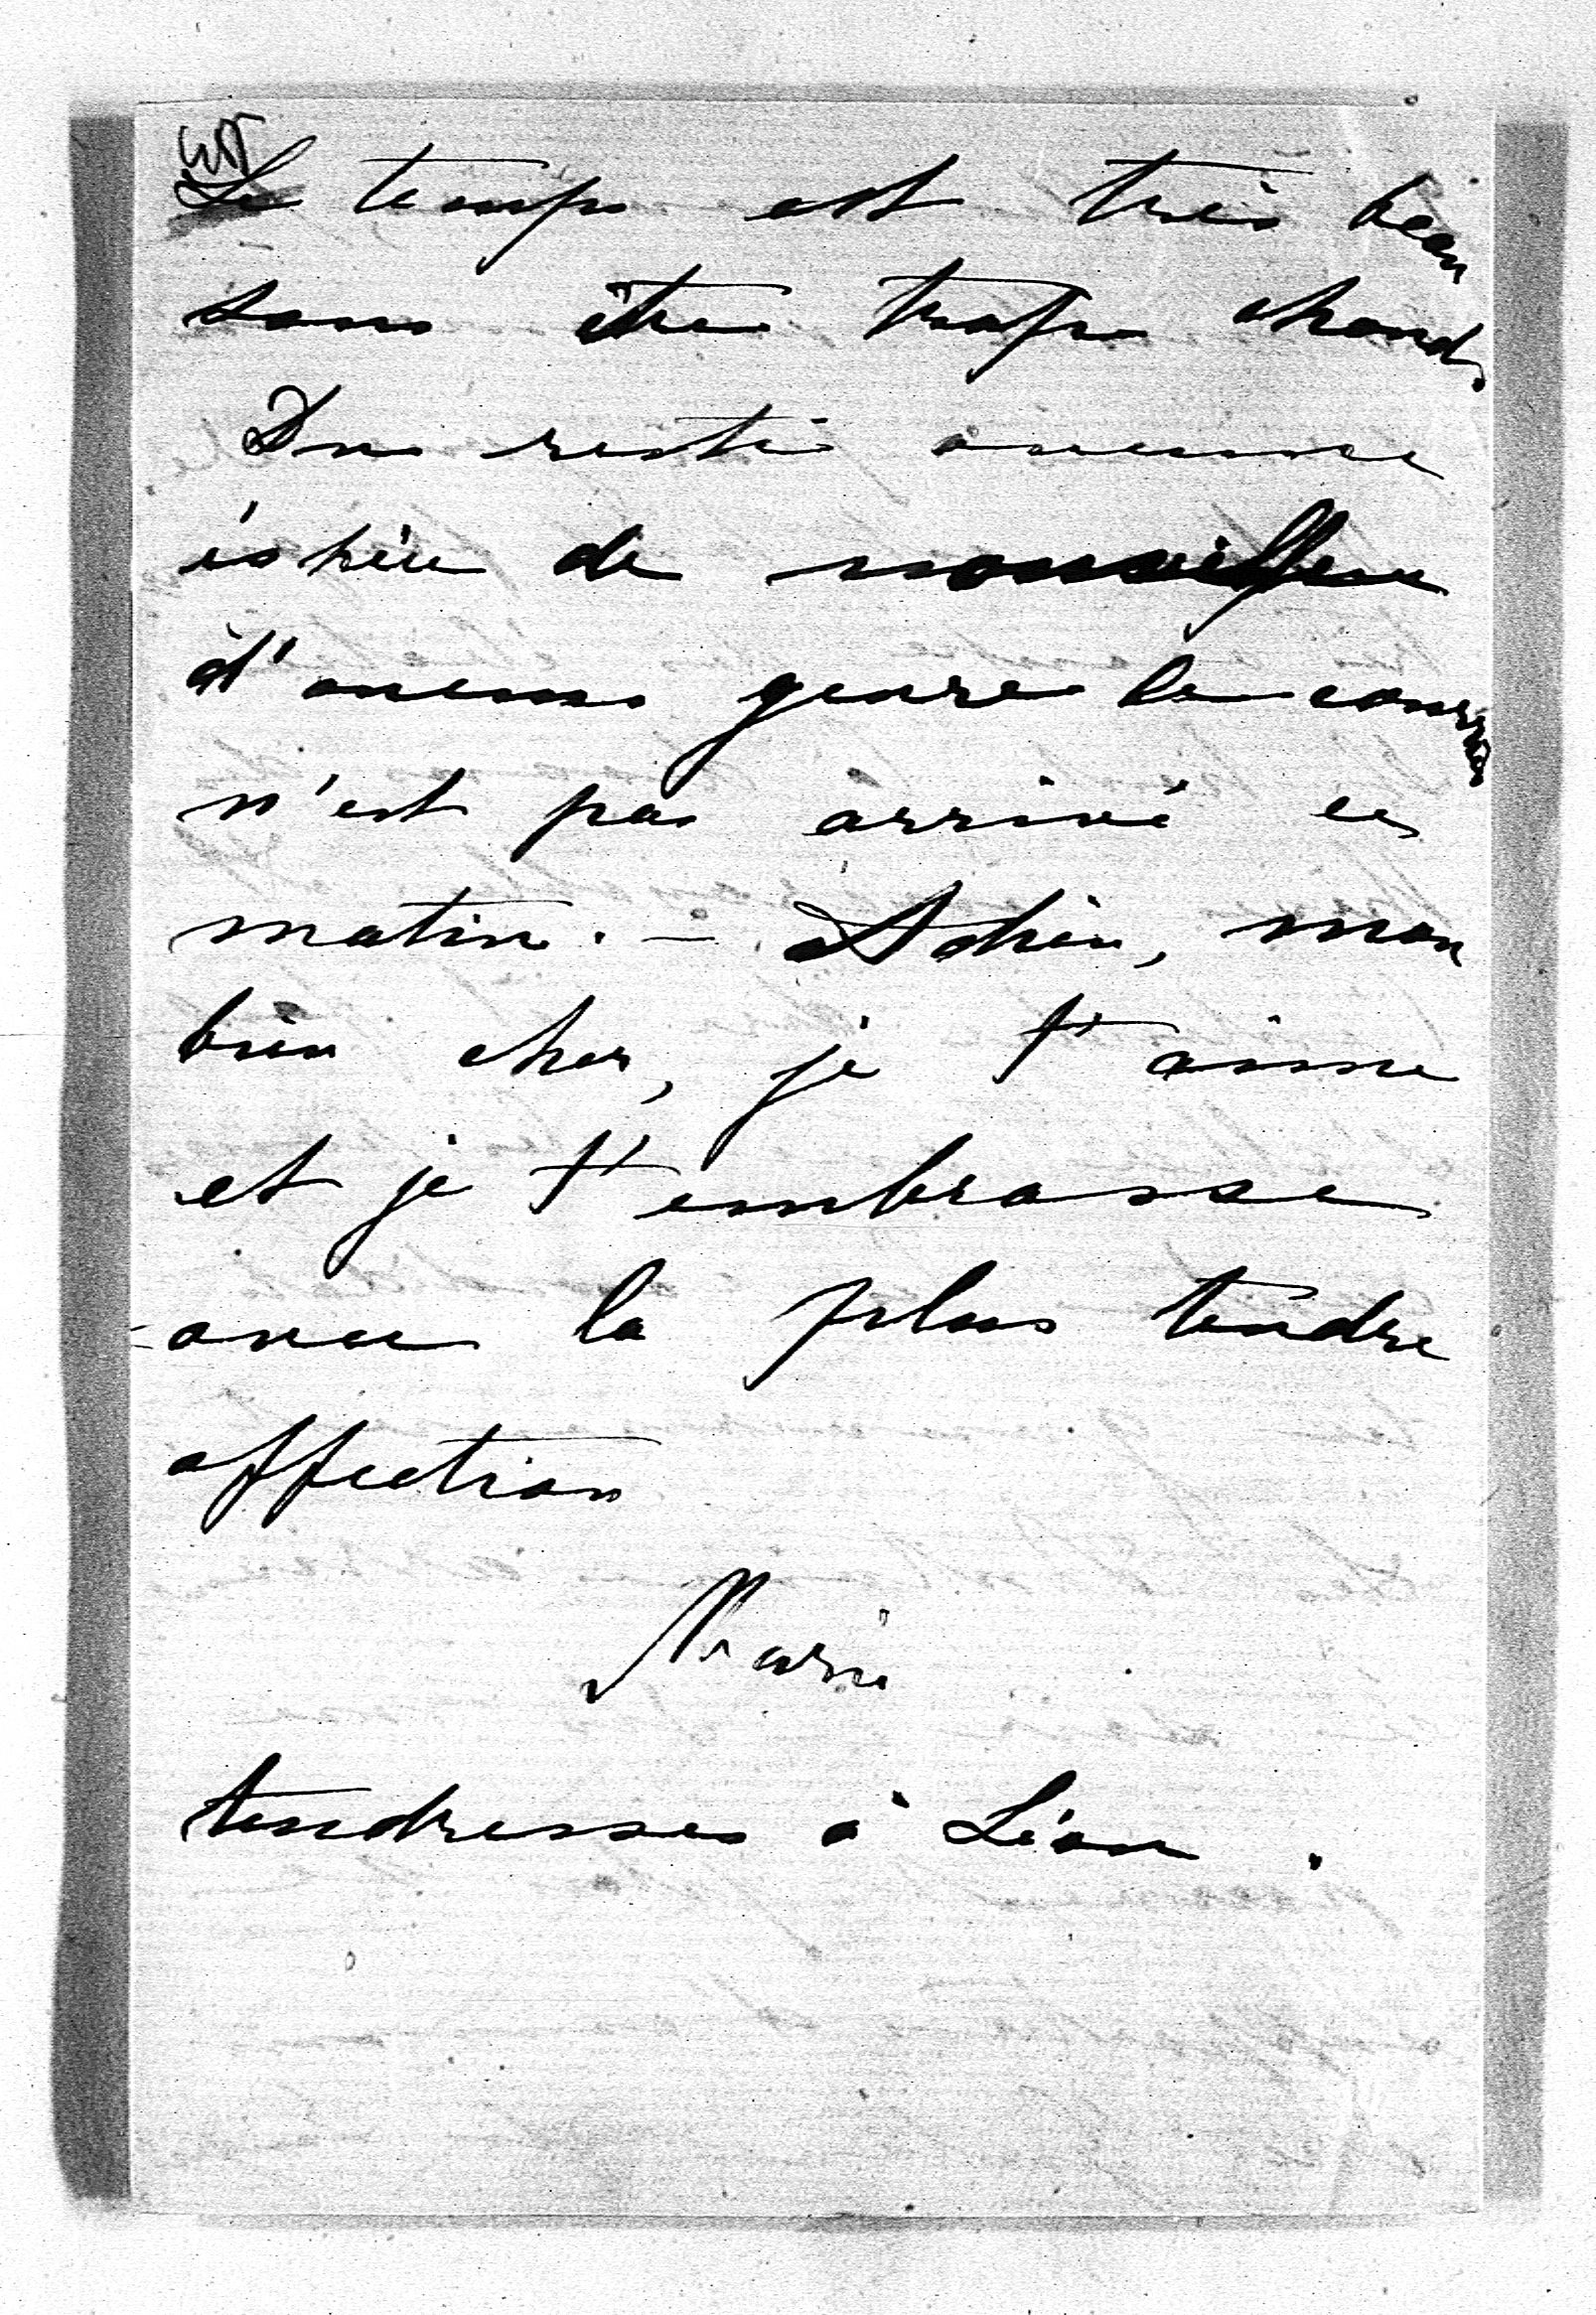 Le temps est très beau
sans être trop chaud.
Du reste aucune
espèce de nouvelle
d'aucun genre le courrier
n'est pas arrivé ce
matin. - Adieu, mon
bien cher, je t'aime
et je t'embrasse
avec la plus tendre
affection
Marie
tendresses à Léon.